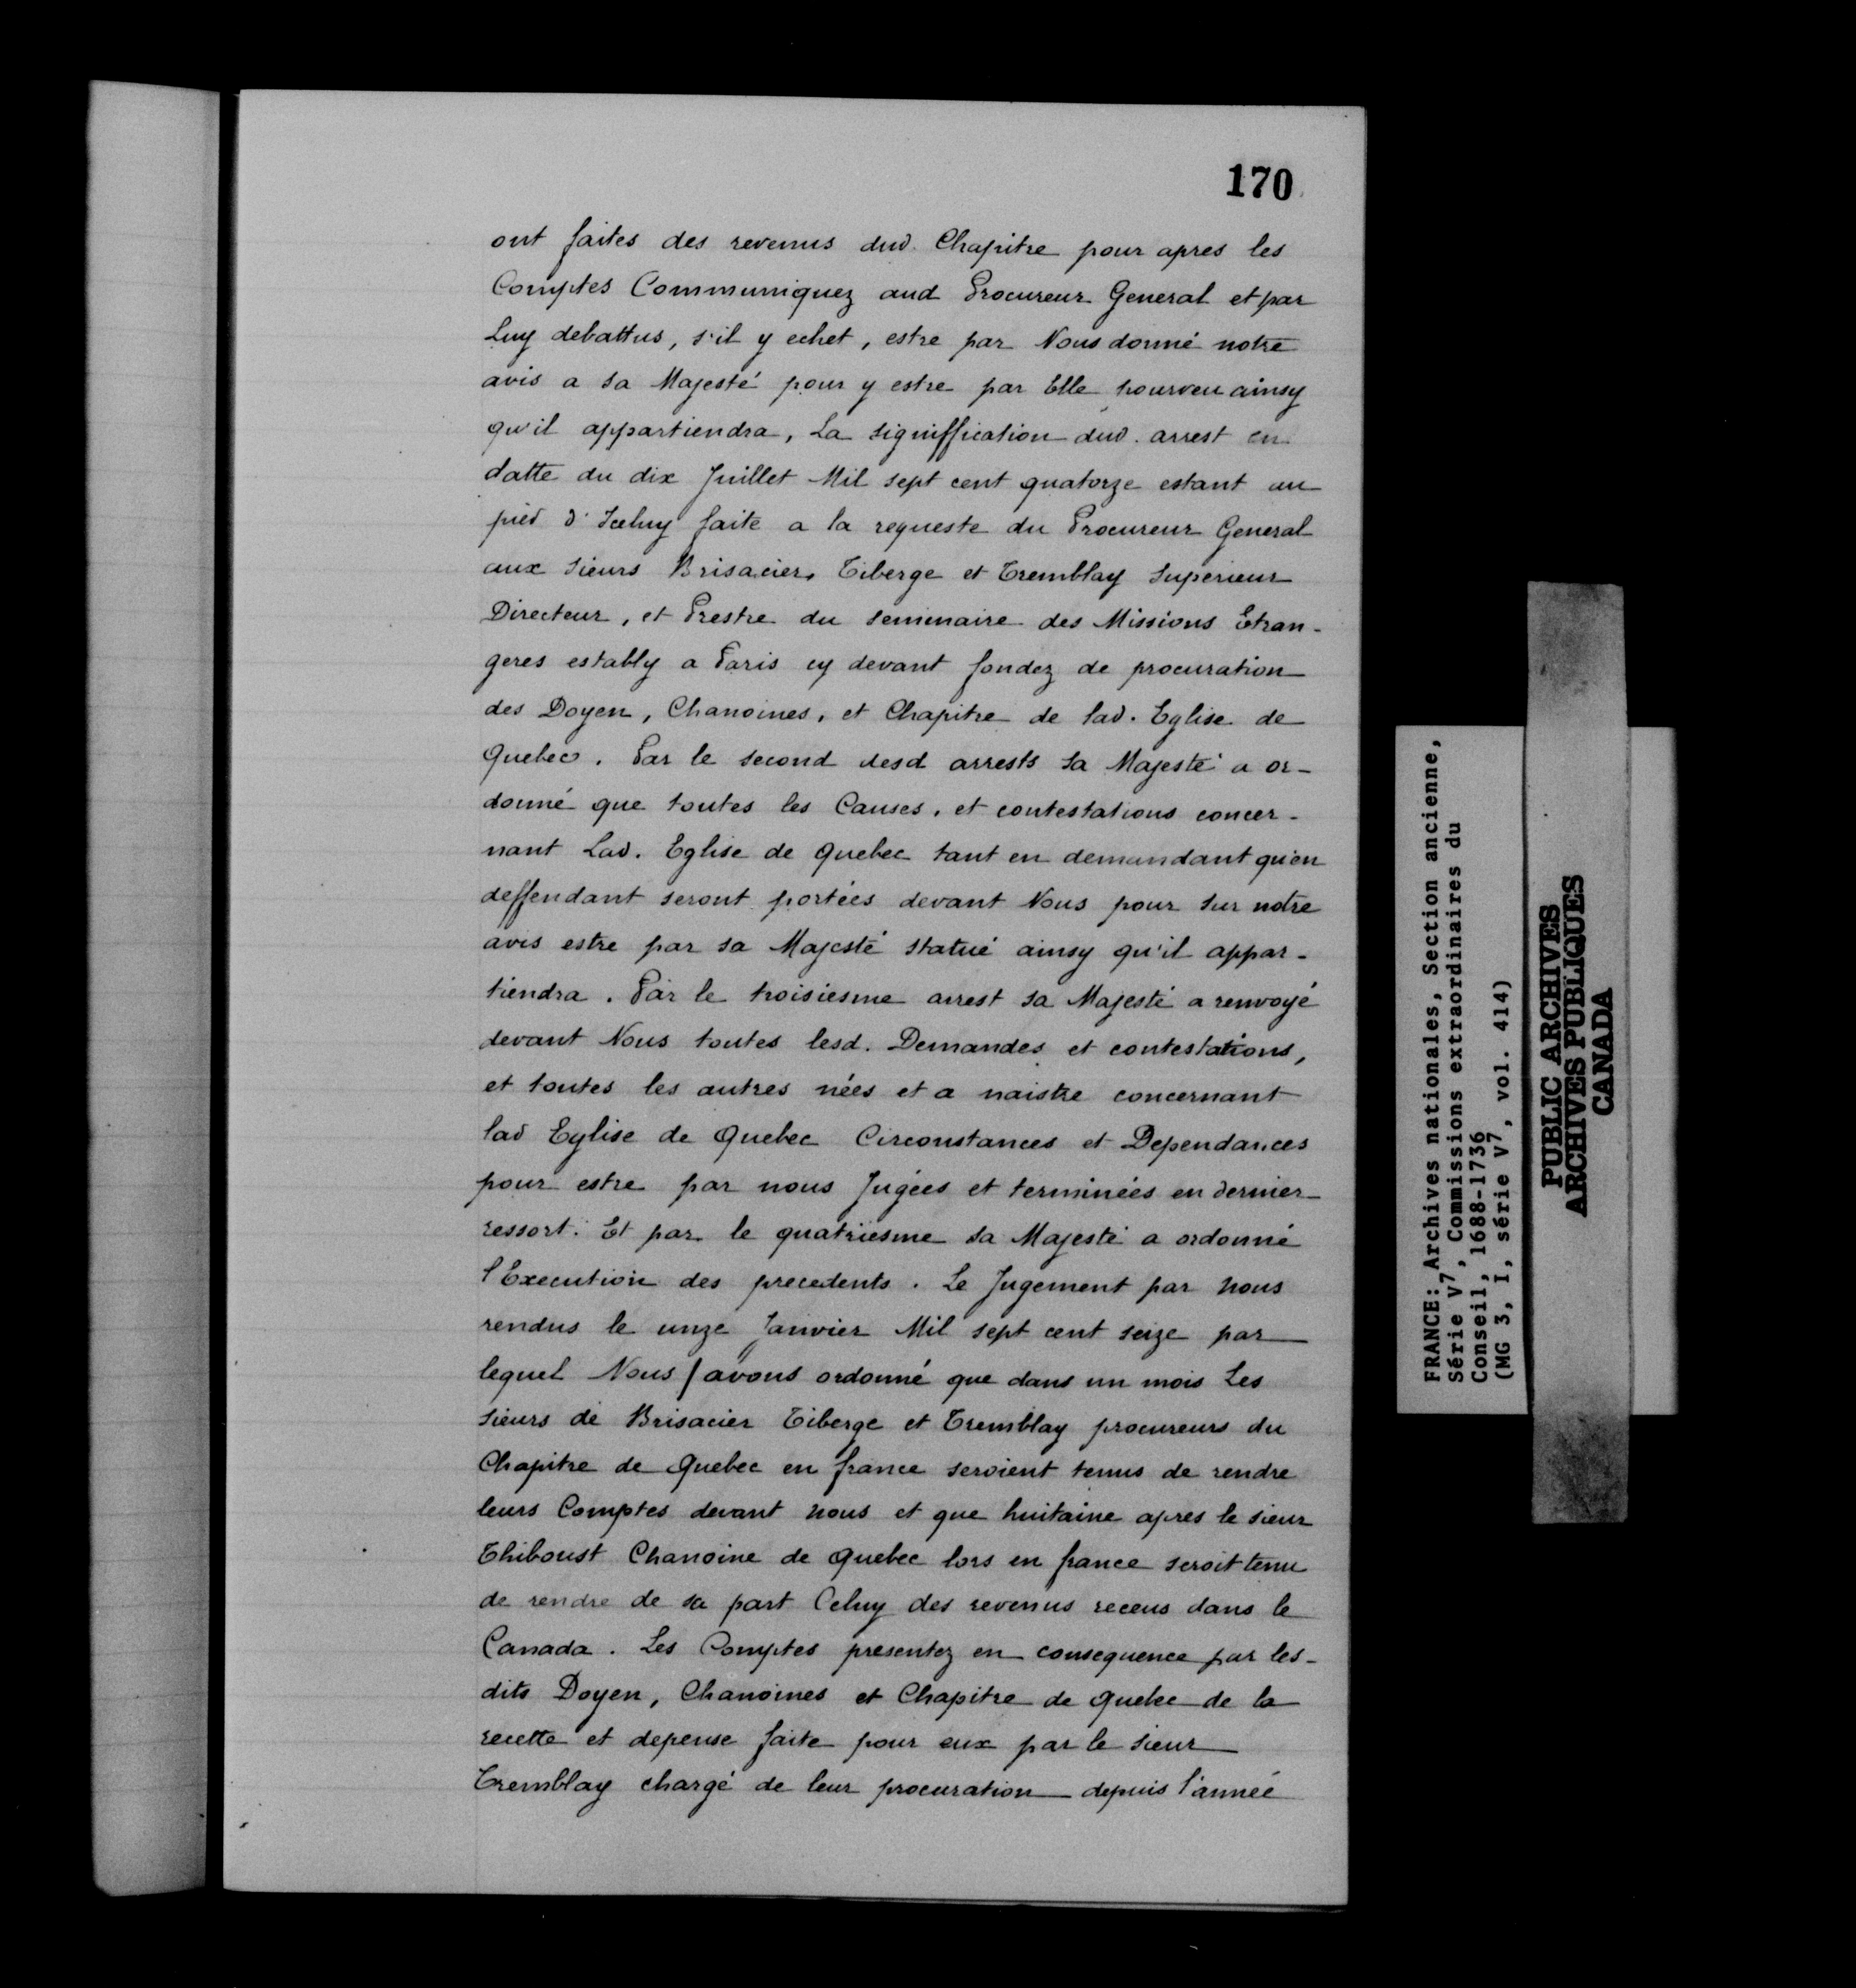 170
ont faites des revenus dud. Chapitre pour apres les
Comptes Communiquez aud Procureur General et par
Luy debattus, s'il y echet, estre par Nous donné notre
avis a sa Majesté pour y estre par Elle pourveu ainsy
qu'il appartiendra, La signiffication dud. arrest en
datte du dix Juillet Mil sept cent quatorze estant au
pied d'Iceluy faite a la requeste du Procureur General
aux sieurs Brisacier, Tiberge et Tremblay Superieur
Directeur, et Prestre du seminaire des Missions Etran-
geres estably a Paris cy devant fondez de procuration
des Doyen, Chanoines, et Chapitre de lad. Eglise de
Quebec. Par le second desd arrests sa Majesté a or-
donné que toutes les Causes, et contestations concer-
nant Lad. Eglise de Quebec tant en demandant qu'en
deffendant seront portées devant Nous pour sur notre
avis estre par sa Majesté statué ainsy qu'il appar-
tiendra. Par le troisiesme arrest sa Majesté a renvoyé
devant Nous toutes lesd. Demandes et contestations,
et toutes les autres nées et a naistre concernant
lad Eglise de Quebec Circonstances et Dependances
pour estre par nous Jugées et terminées en dernier
ressort. Et par le quatriesme sa Majesté a ordonné
l'Execution des precedents. Le Jugement par nous
rendus le unze Janvier Mil sept cent seize par
lequel Nous / avons ordonné que dans un mois Les
sieurs de Brisacier Tiberge et Tremblay procureurs du
Chapitre de Quebec en france seroient tenus de rendre
leurs Comptes devant nous et que huitaine apres le sieur
Thiboust Chanoine de Quebec lors en france seroit tenu
de rendre de sa part Celuy des revenus receus dans le
Canada. Les Comptes presentez en consequence par les-
dits Doyen, Chanoines et Chapitre de Quebec de la
recette et depense faite pour eux par le sieur
Tremblay chargé de leur procuration depuis l'année
FRANCE: Archives nationales, Section ancienne,
Série V7, Commissions extraordinaires du
Conseil, 1688-1736
(MG 3, I, série V7, vol. 414)
PUBLIC ARCHIVES
ARCHIVES PUBLIQUES
CANADA